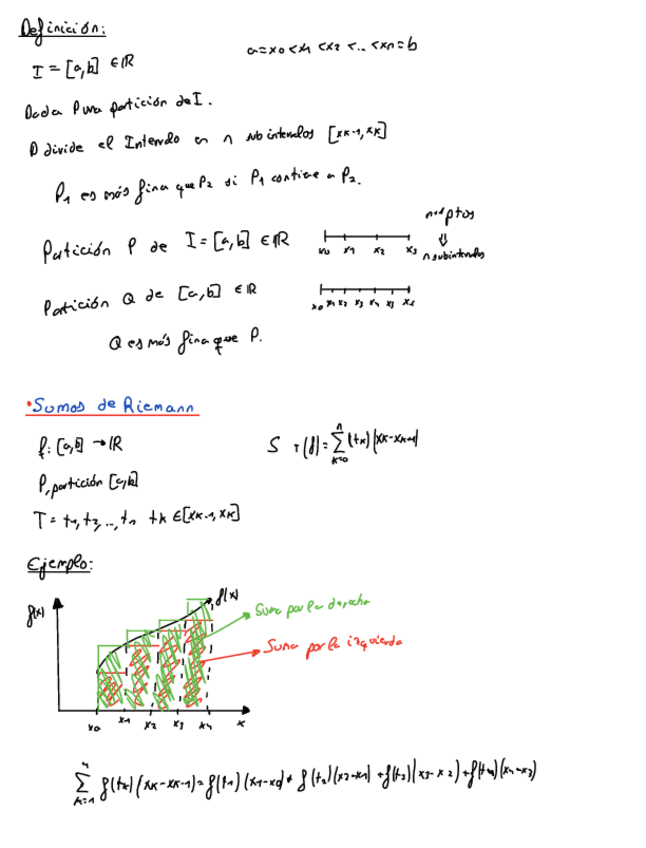 Definición:
a=x0<x1<x2<...<xn=b
I=[a,b] ∈ℝ
Dada P una partición de I.
P divide el Intervalo en n subintervalos [xk-1,xk]
P1 es más fina que P2 si P1 contiene a P2.
n+1 ptos
⇓
n subintervalos
Partición P de I=[a,b] ∈ℝ
x0 x1 x2 x3
Partición Q de [a,b] ∈ℝ
x0 x1 x2 x3 x4 x5 x6
Q es más fina que P.
•Sumas de Riemann
f: [a,b] →ℝ
S T(f)=∑ k=0 n (tk)|xk-xk-1|
P, partición [a,b]
T= t1, t2, ..., tn tk ∈[xk-1,xk]
Ejemplo:
f(x)
f(x)
Suma por la derecha
Suma por la izquierda
x0 x1 x2 x3 x4 x
∑ k=1 4 f(tk)(xk-xk-1)=f(t1)(x1-x0)+f(t2)(x2-x1)+f(t3)(x3-x2)+f(t4)(x4-x3)